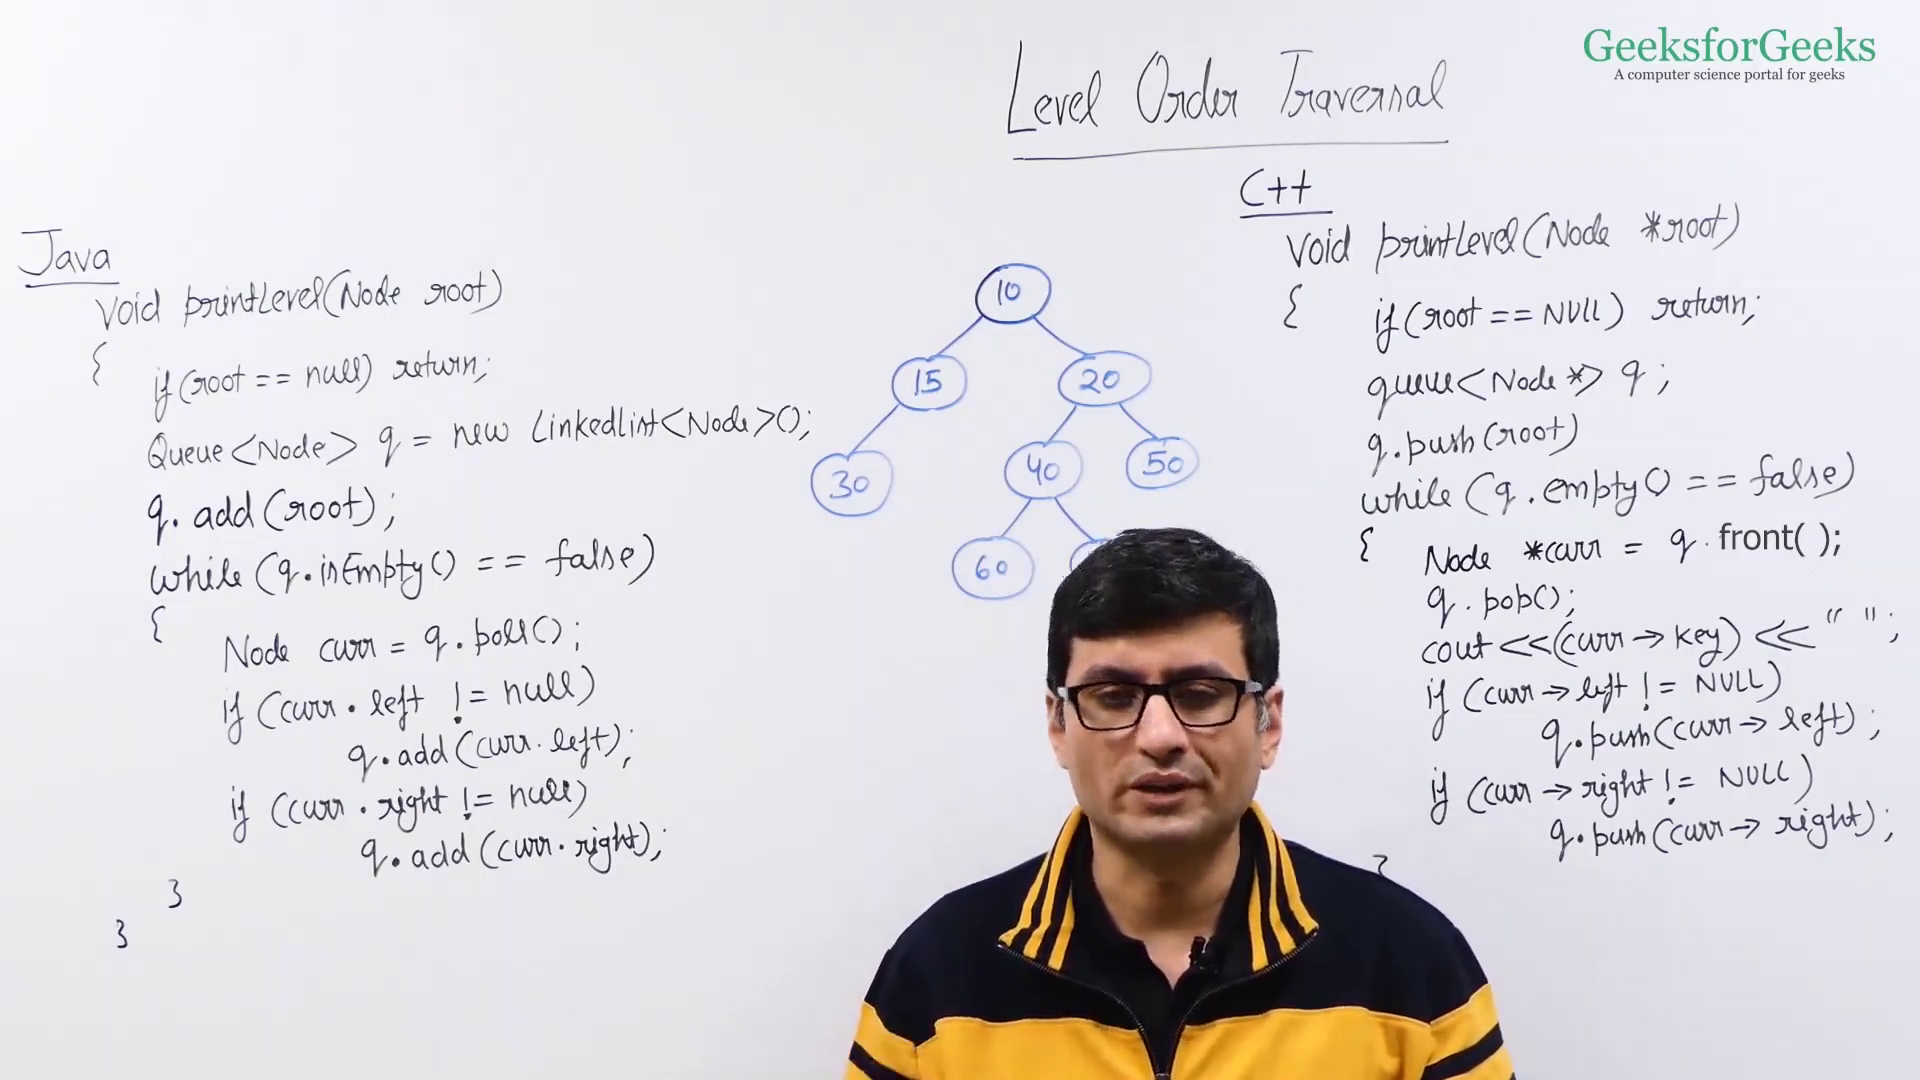 GeeksforGeeks
A computer science portal for geeks
Level Order Traversal
Java
Void printLevel(Node root)
{
if(root == null) return;
Queue<Node> q = new Linkedlist<Node>();
q.add(root);
while (q.isEmpty() == false)
{
Node curr = q.poll();
if (curr.left != null)
q.add(curr.left);
if (curr.right != null)
q.add(curr.right);
}
}
10
15 20
30 40 50
60
C++
Void printLevel(Node *root)
{
if(root == NULL) return;
queue<Node *> q;
q.push(root)
while (q.empty() == false)
{
Node *curr = q.front( );
q.pop();
cout <<(curr→key) << " ";
if (curr→left != NULL)
q.push(curr→left);
if (curr→right != NULL)
q.push(curr→right);
}